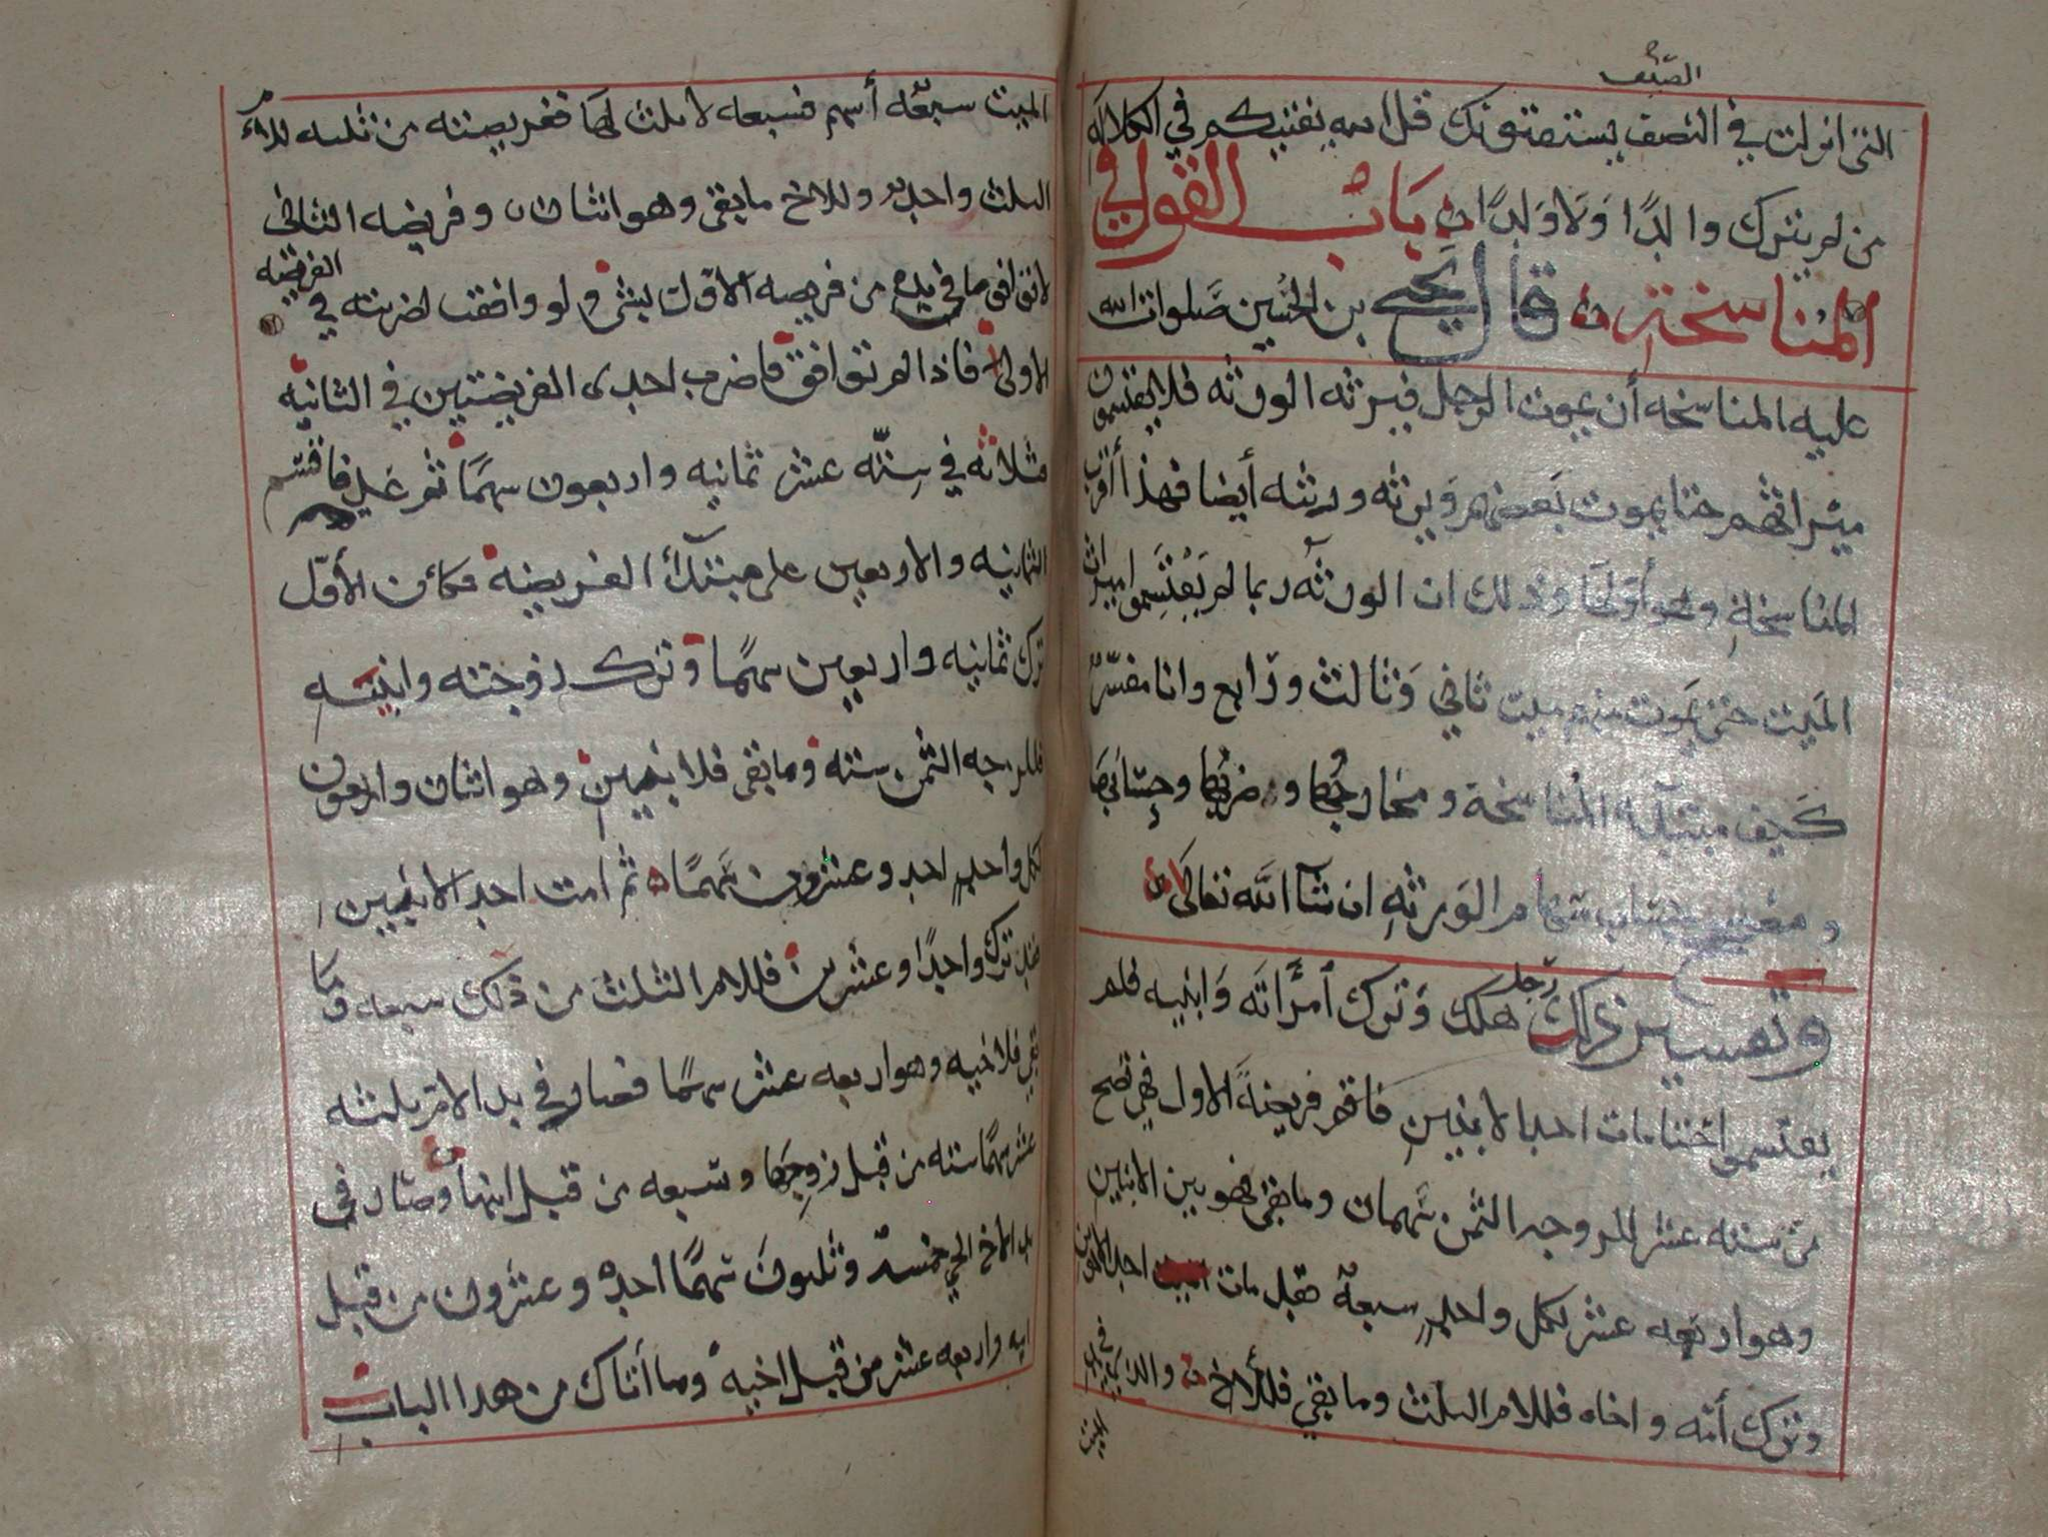 الصيف
التي انزلت في النصف يستفتونك قل الله يفتيكم في الكلاله
من لم يترك والدًا وَلَا وَلدًا باب القول في
المناسخة قال يحيى بن الحُسين صَلوات الله
عليه المناسخه أن يموت الرجل فيرثه الورثه فلا يقتسمون
ميراثهم حتا يموت بَعضهم وَيرثه ورثته أيضا فهذا أقرب
المناسخة وهو أولها وذلك ان الورثه ربما لم يَقتسِموا ميراث
المَيت حتى يَموت منهم ميت ثاني وَثالث ورَابع وانا مفسّرٌ
كَيف مبتدأ المُناسخة ومخارجُها وضربُها وحِسَابَها
و سهام الوَرثهِ ان شآ الله تعالى
وتفسير ذلك رَجل هلك وَترك أمرَأتَه وَابنيه فلم
يقتسموا حتا مات احد الابنين فاقم فريضةَ الاول فهي تصح
من سته عشر للزوجه الثمن سَهمان وما بقى فهو بين الابنين
وهو اربعه عشر لكل واحدٍ سبعهٌ فلما مات احد الابنين
وترك أمّه واخاه فللام الثلث وما بقي فللأخ والذي في يد
الميت سبعَه أسهم فسبعه لا ثلث لها ففريضته من ثلثه للام
الثلث واحد وللاخ ما بقى وهو اثنان وفريضه الثاني
لا توافق ما في يده من فريضه الاول بشى ولو وافقت لضربته في الفريضه
الاولى فاذا لم توافق فاضرب احدى الفريضتين في الثانيه
ثلاثه في سِتّه عشر ثمانيه واربعون سهمًا ثم عَد فاقسم
الثمانيه والاربعين على مبتدأ الفريضه فكان الأوّل
ترك ثمانيه واربعين سهمًا وترك زوجته وابنيه
فللزوجه الثمن سته وما بقى فلابنين وهو اثنان واربعون
لكل واحدٍ احد وعشرون سَهمًا ثم مات احد الابنين
فقد ترك واحدًا وعشرين فللام الثلث من ذلك سبعه وما
بقي فلاخيه وهو اربعه عشر سهمًا فصار في يد الام ثلثه
عشر سهمًا سته من قبل زوجها وسَبعه من قبل ابنها وصَار في
يد الاخ الحي خمسهٌ وثلثون سَهمًا احد وعشرون من قبل
ابيه واربعه عشر من قبل اخيه وما أتاك من هذا الباب